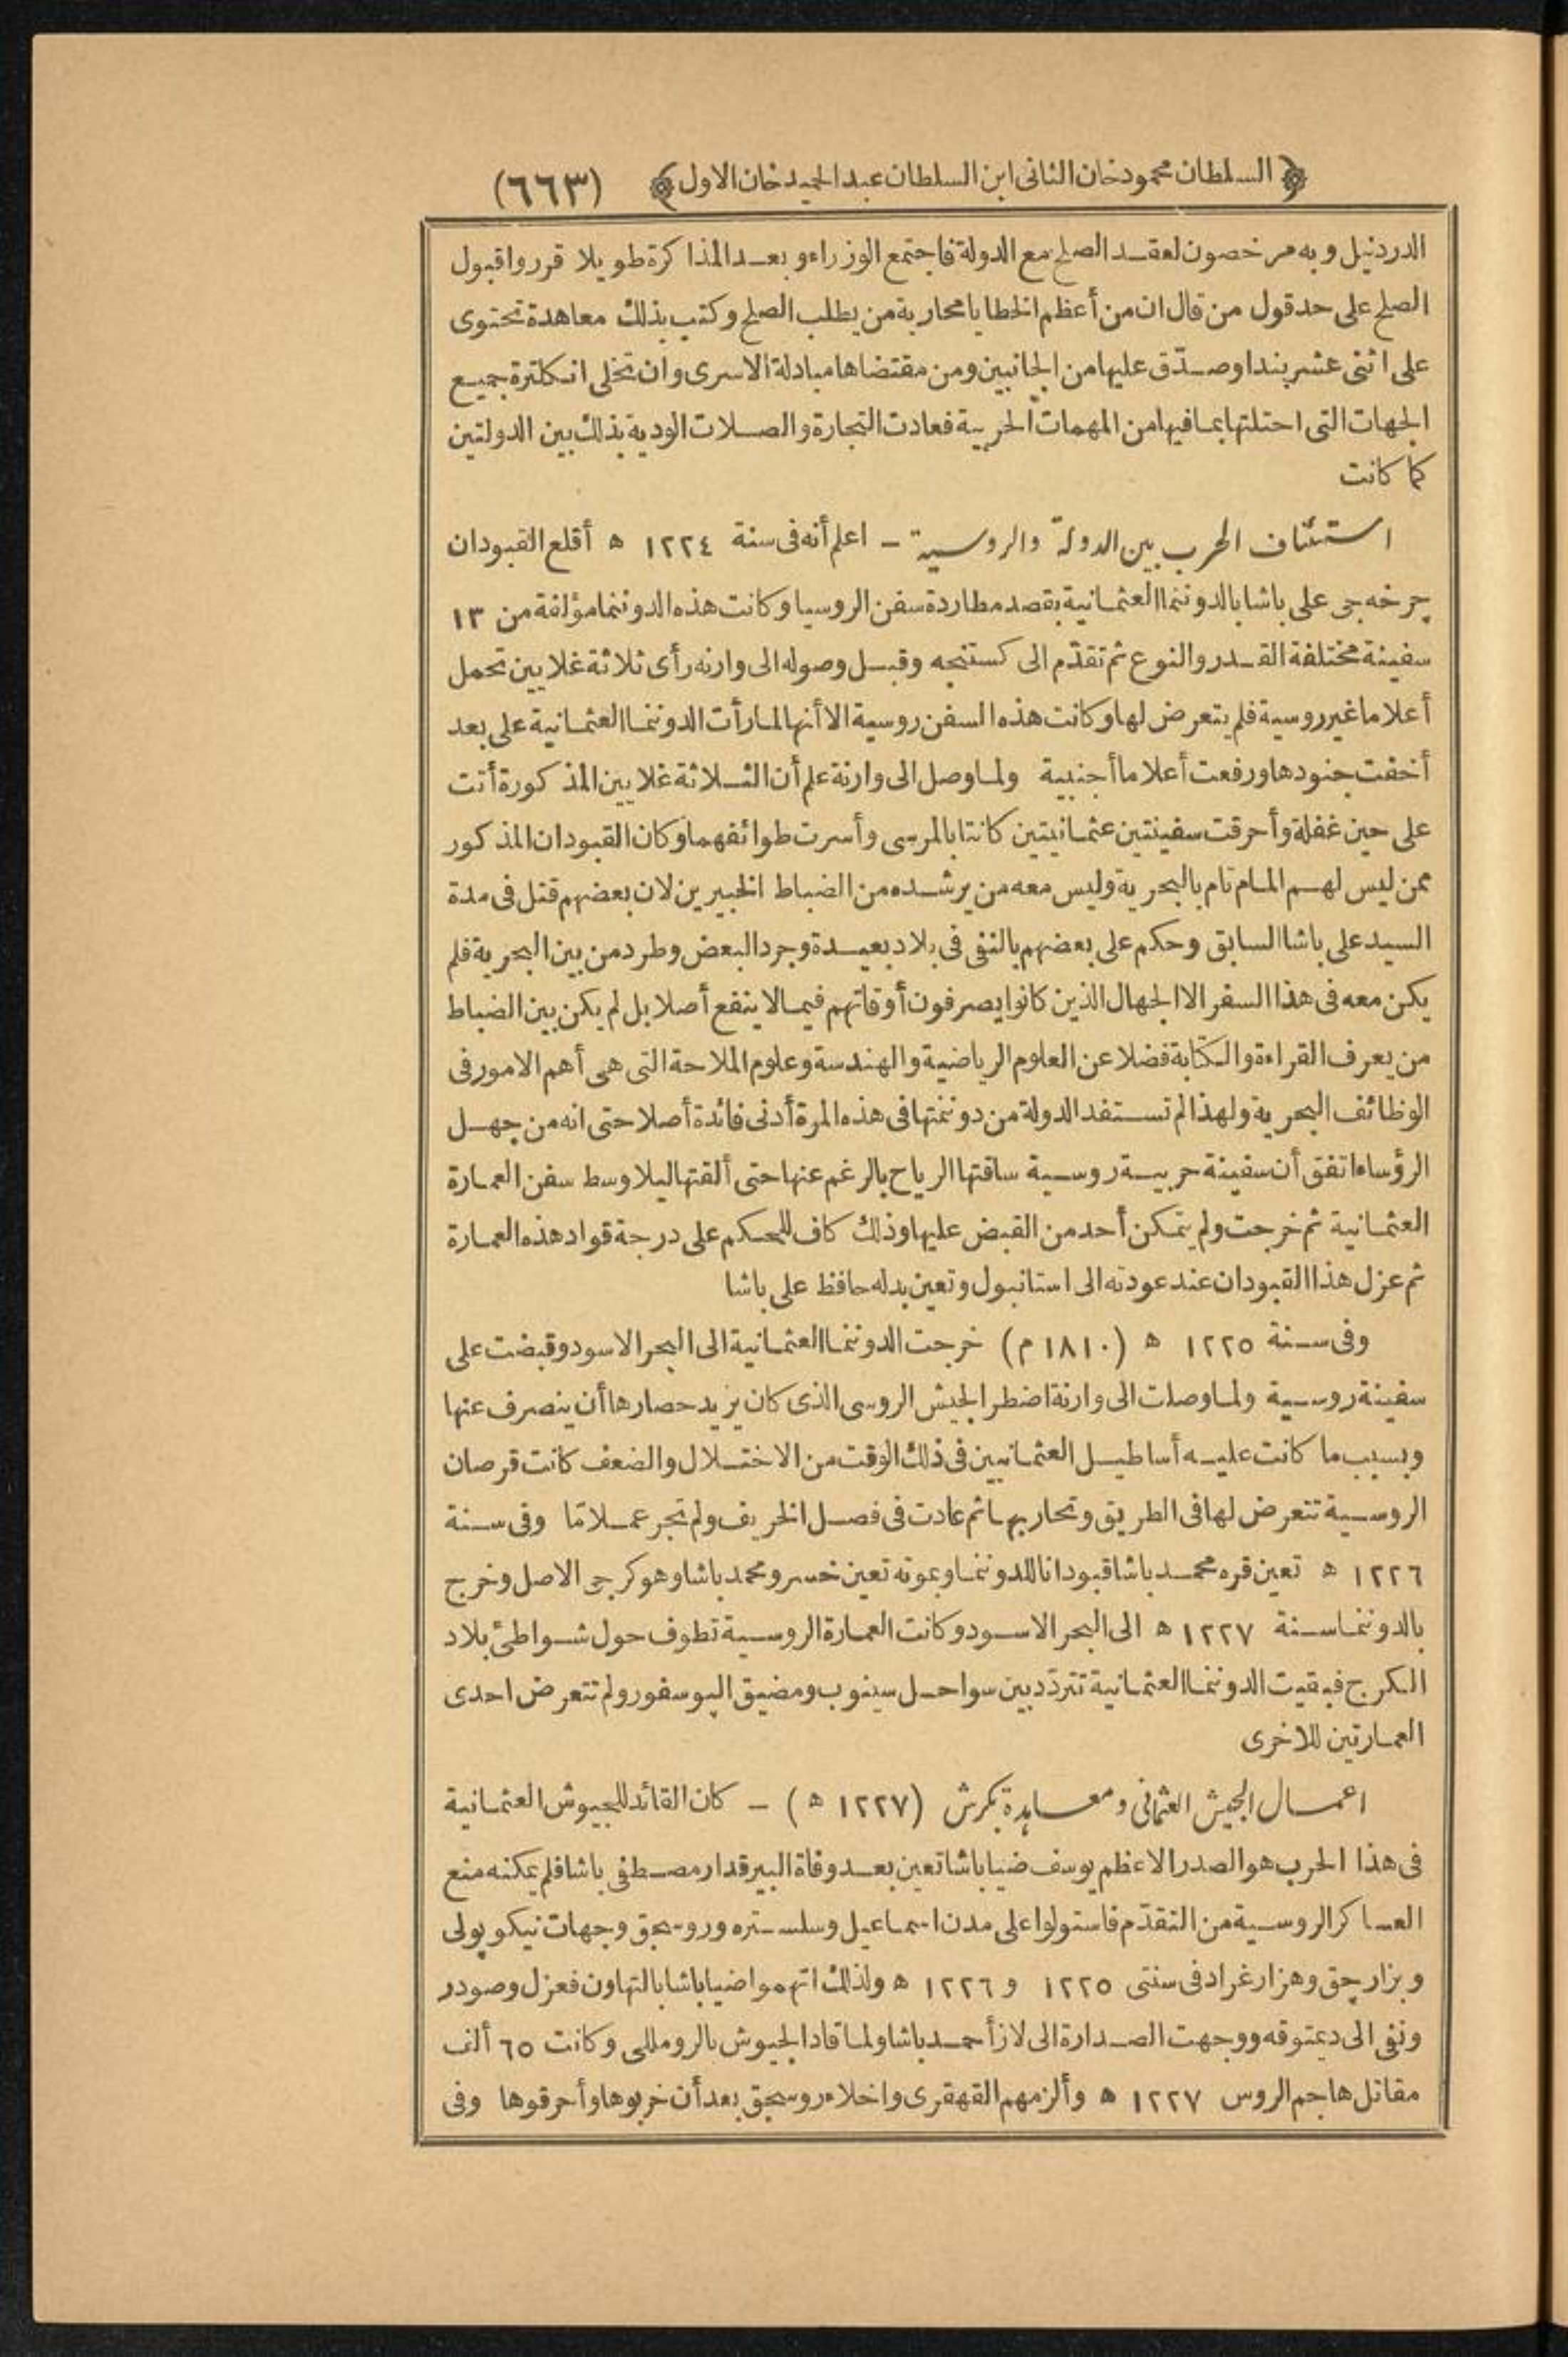 ﴿ السلطان محمود خان الثانى ابن السلطان عبد الحميد خان الاول ﴾ (٦٦٣)
الدردنيل وبه مرخصون لعقد الصلح مع الدولة فاجتمع الوزراء وبعد المذاكرة طويلا قرروا قبول
الصلح على حد قول من قال ان من أعظم الخطايا محاربة من يطلب الصلح وكتب بذلك معاهدة تحتوى
على اثنى عشر بندا وصدّق عليها من الجانبين ومن مقتضاها مبادلة الاسرى وان تخلى انكلترة جميع
الجهات التى احتلتها بما فيها من المهمات الحربية فعادت التجارة والصلات الودية بذلك بين الدولتين
كما كانت
استئناف الحرب بين الدولة والروسية – اعلم أنه فى سنة ١٢٢٤ ه أقلع القبودان
چرخه جى على باشا بالدوننما العثمانية بقصد مطاردة سفن الروسيا وكانت هذه الدوننما مؤلفة من ١٣
سفينة مختلفة القدر والنوع ثم تقدّم الى كستنجه وقبل وصوله الى وارنه رأى ثلاثة غلايين تحمل
أعلاما غير روسية فلم يتعرض لها وكانت هذه السفن روسية الا أنها لما رأت الدوننما العثمانية على بعد
أخفت جنودها ورفعت أعلاما أجنبية ولما وصل الى وارنة علم أن الثلاثة غلايين المذكورة أتت
على حين غفلة وأحرقت سفينتين عثمانيتين كانتا بالمرسى وأسرت طوائفهما وكان القبودان المذكور
ممن ليس لهم المام تام بالبحرية وليس معه من يرشده من الضباط الخبيرين لان بعضهم قتل فى مدة
السيد على باشا السابق وحكم على بعضهم بالنفى فى بلاد بعيدة وجرد البعض وطرد من بين البحرية فلم
يكن معه فى هذا السفر الا الجهال الذين كانوا يصرفون أوقاتهم فيما لا ينفع أصلا بل لم يكن بين الضباط
من يعرف القراءة والكتابة فضلا عن العلوم الرياضية والهندسة وعلوم الملاحة التى هى أهم الامور فى
الوظائف البحرية ولهذا لم تستفد الدولة من دوننمتها فى هذه المرة أدنى فائدة أصلا حتى انه من جهل
الرؤساء اتفق أن سفينة حربية روسية ساقتها الرياح بالرغم عنها حتى ألقتها ليلا وسط سفن العمارة
العثمانية ثم خرجت ولم يتمكن أحد من القبض عليها وذلك كاف للحكم على درجة قواد هذه العمارة
ثم عزل هذا القبودان عند عودته الى استانبول وتعين بدله حافظ على باشا
وفى سنة ١٢٢٥ ه (١٨١٠ م) خرجت الدوننما العثمانية الى البحر الاسود وقبضت على
سفينة روسية ولما وصلت الى وارنة اضطر الجيش الروسى الذى كان يريد حصارها أن ينصرف عنها
وبسبب ما كانت عليه أساطيل العثمانيين فى ذلك الوقت من الاختلال والضعف كانت قرصان
الروسية تتعرض لها فى الطريق وتحاربها ثم عادت فى فصل الخريف ولم تجر عملا تما وفى سنة
١٢٢٦ ه تعين قره محمد باشا قبودانا للدوننما وبموته تعين خسرو محمد باشا وهو كرجى الاصل وخرج
بالدوننما سنة ١٢٢٧ ه الى البحر الاسود وكانت العمارة الروسية تطوف حول شواطئ بلاد
الكرج فبقيت الدوننما العثمانية تتردّد بين سواحل سينوب ومضيق البوسفور ولم تتعرض احدى
العمارتين للاخرى
اعمال الجيش العثمانى ومعاهدة بكرش (١٢٢٧ ه) – كان القائد للجيوش العثمانية
فى هذا الحرب هو الصدر الاعظم يوسف ضيا باشا تعين بعد وفاة البيرقدار مصطفى باشا فلم يمكنه منع
العساكر الروسية من التقدّم فاستولوا على مدن اسماعيل وسلستره وروسجق وجهات نيكوپولى
وبزارچق وهزارغراد فى سنتى ١٢٢٥ و ١٢٢٦ ه ولذلك اتهموا ضيا باشا بالتهاون فعزل وصودر
ونفى الى ديمتوقه ووجهت الصدارة الى لاز أحمد باشا ولما قاد الجيوش بالروملى وكانت ٦٥ ألف
مقاتل هاجم الروس ١٢٢٧ ه وألزمهم القهقرى واخلاء روسجق بعد أن خربوها وأحرقوها وفى